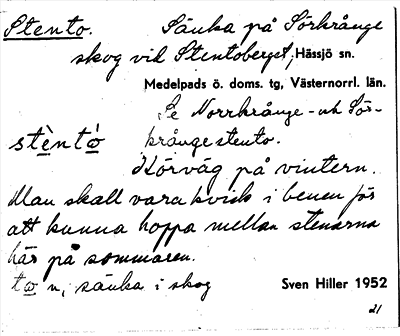 Stento. Sänka på Sörkrånge
skog vid Stentoberget, Hässjö sn.
Medelpads ö. doms. tg, Västernorrl. län.
Se Norrkrånge- och Sör-
stènto krångestento.
Körväg på vintern.
Man skall vara kvick i benen för
att kunna hoppa mellan stenarna
här på sommaren.
to n, sänka i skog Sven Hiller 1952
21